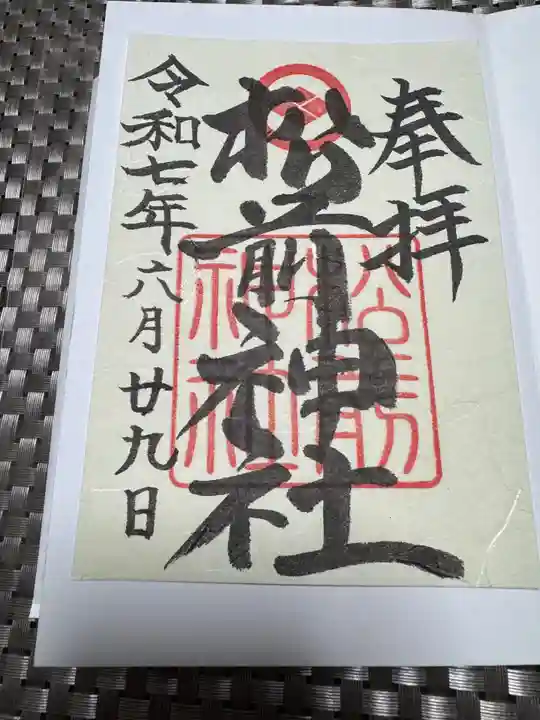 奉拝
松前神社
松前
神社
令和七年六月廿九日